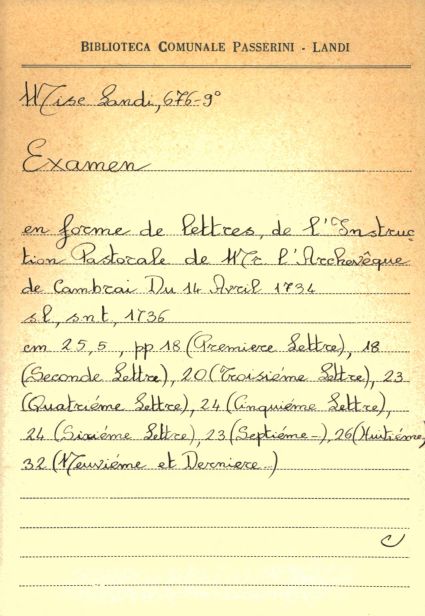 BIBLIOTECA COMUNALE PASSERINI - LANDI
Misc Landi, 676-9°
Examen
en forme de lettres, de l'Instruc
tion Pastorale de Mr l'Archevêque
de Cambrai Du 14 Avril 1734
sl, snt, 1736
cm 25,5, pp 18 (Premiere Lettre), 18
(Seconde Lettre), 20 (Troisiéme Lettre), 23
(Quatriéme Lettre), 24 (Cinquiéme Lettre),
24 (Sixiéme Lettre), 23 (Septiéme-), 26 (Huitiéme)
32 (Neuviéme et Derniere..)